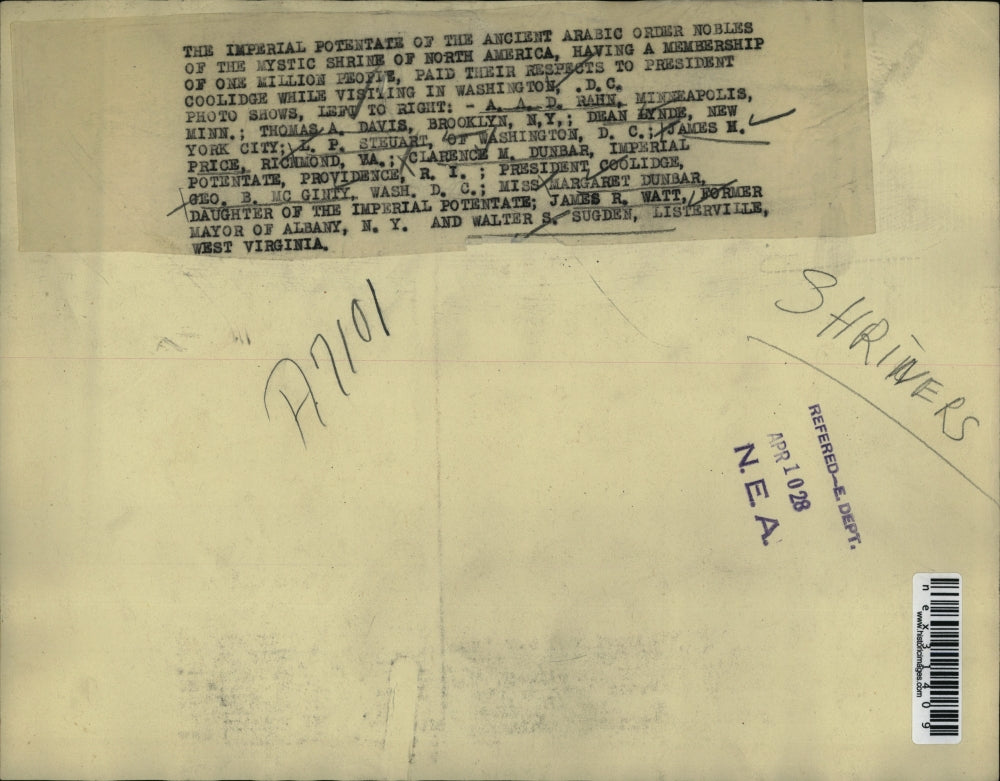 THE IMPERIAL POTENTATE OF THE ANCIENT ARABIC ORDER NOBLES
OF THE MYSTIC SHRINE OF NORTH AMERICA, HAVING A MEMBERSHIP
OF ONE MILLION PEOPLE, PAID THEIR RESPECTS TO PRESIDENT
COOLIDGE WHILE VISITING IN WASHINGTON, .D.C.
PHOTO SHOWS, LEFT TO RIGHT: - A. A. D. RAHN, MINNEAPOLIS,
MINN.; THOMAS A. DAVIS, BROOKLYN, N.Y.; DEAN LYNDE, NEW
YORK CITY; L. P. STEUART, OF WASHINGTON, D. C.; JAMES H.
PRICE, RICHMOND, VA.; CLARENCE M. DUNBAR, IMPERIAL
POTENTATE, PROVIDENCE, R. I. ; PRESIDENT COOLIDGE,
GEO. B. MC GINTY, WASH. D. C.; MISS MARGARET DUNBAR,
DAUGHTER OF THE IMPERIAL POTENTATE; JAMES R. WATT, FORMER
MAYOR OF ALBANY, N. Y. AND WALTER S. SUGDEN, LISTERVILLE,
WEST VIRGINIA.
A7101
SHRINERS
REFERED-E. DEPT.
APR 10 28
N. E. A.
nex31409
www.historicimages.com